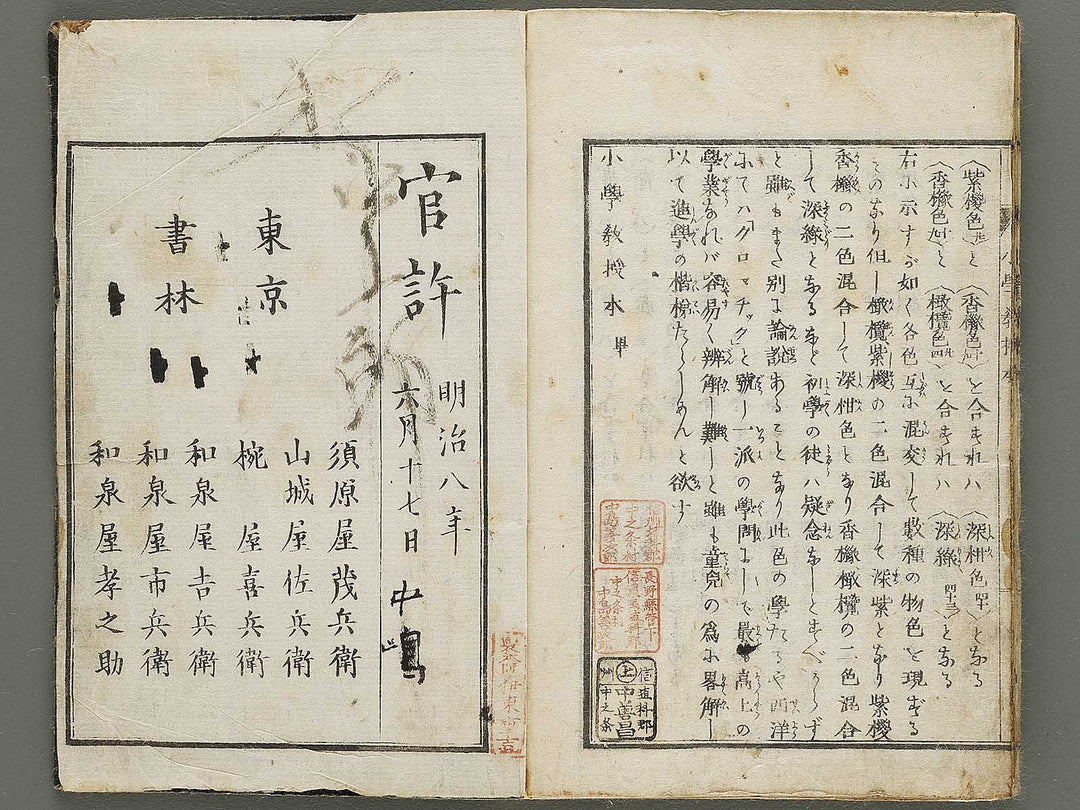 〈紫椶色〉と〈香櫞色〉を合すれハ〈深柑色〉となる
〈香櫞色〉と〈橄欖色〉を合すれハ〈深綠〉となる
右に示すが如く各色互に混交して數種の物色を現ずる
ものなり但し橄欖紫椶の二色混合して深紫となり紫椶
香櫞の二色混合して深柑色となり香櫞橄欖の二色混合
して深綠となるなど初學の徒ハ疑念なしとすべからず
と雖もまた別に論說あることなり此色の學たるや西洋
にてハ「クロマチック」と號し一派の學問にして最も高上の
學業なれバ容易く辨解し難しと雖も童兒の爲に畧解し
以て進學の楷梯たらしめんと欲す
小學敎授本 畢
長野縣管下
信
埴科郡
中之条
官許
明治八年
六月十七日
東京
書林
須原屋茂兵衛
山城屋佐兵衛
椀屋喜兵衛
和泉屋吉兵衛
和泉屋市兵衛
和泉屋孝之助